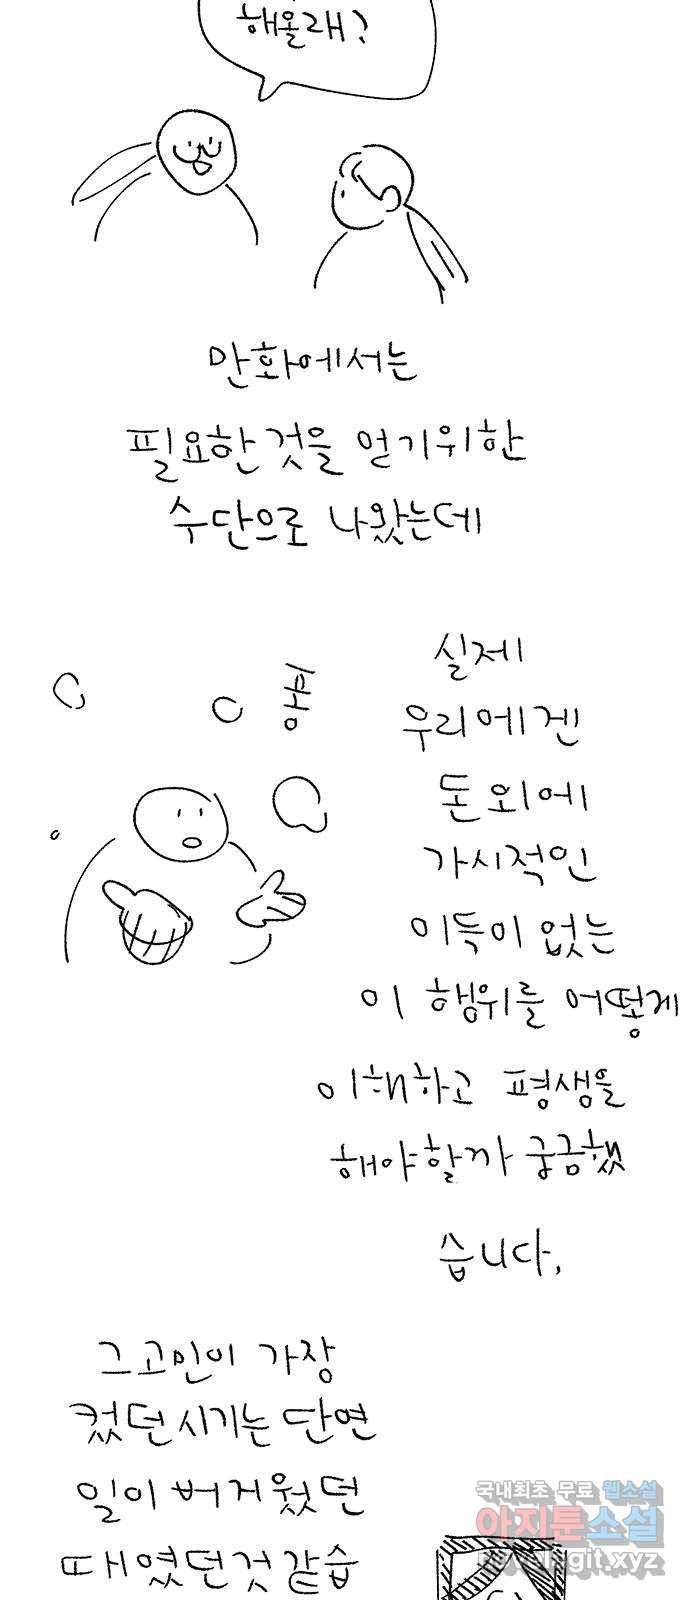 해올래?
만화에서는
필요한것을 얻기위한
수단으로 나왔는데
실제
우리에겐
돈 외에
가시적인
이득이 없는
이 행위를 어떻게
이해하고 평생을
해야할까 궁금했
습니다.
콩
그고민이 가장
컸던시기는 단연
일이 버거웠던
때였던것 같습
국내최초 무료 웹소설
아지툰소설
novelagit.xyz